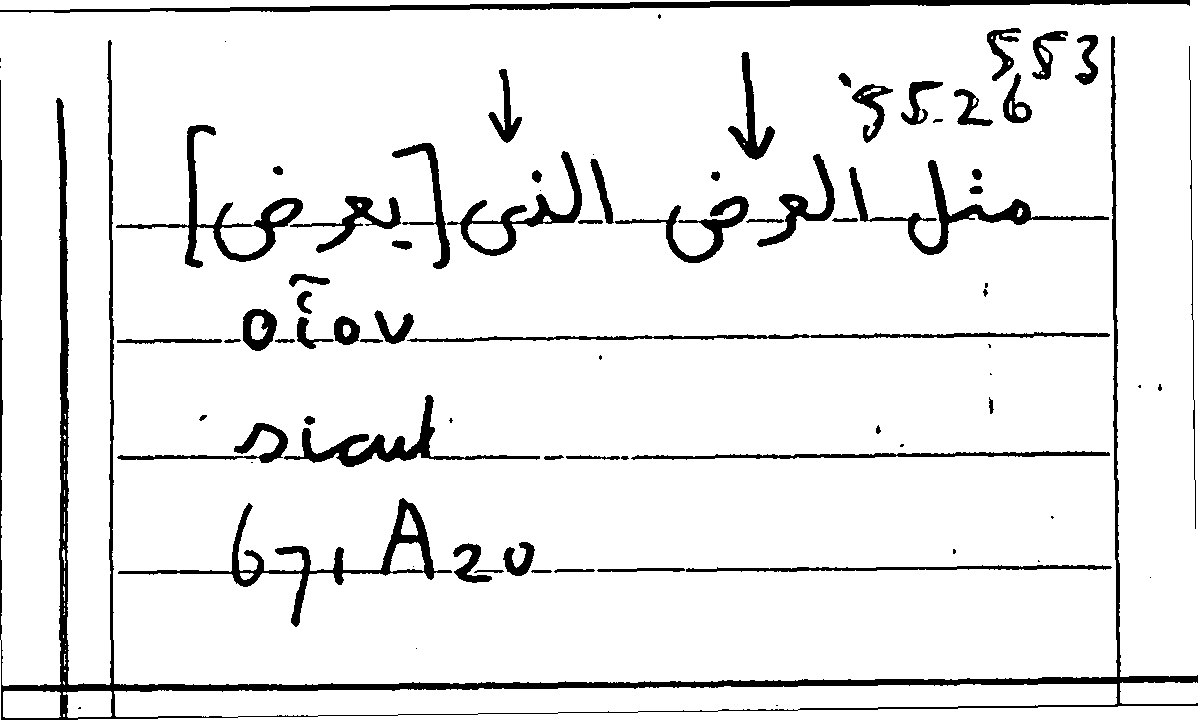 553
55.26
مثل العرض الذى [يعرض]
οἷον
sicut
671 A20